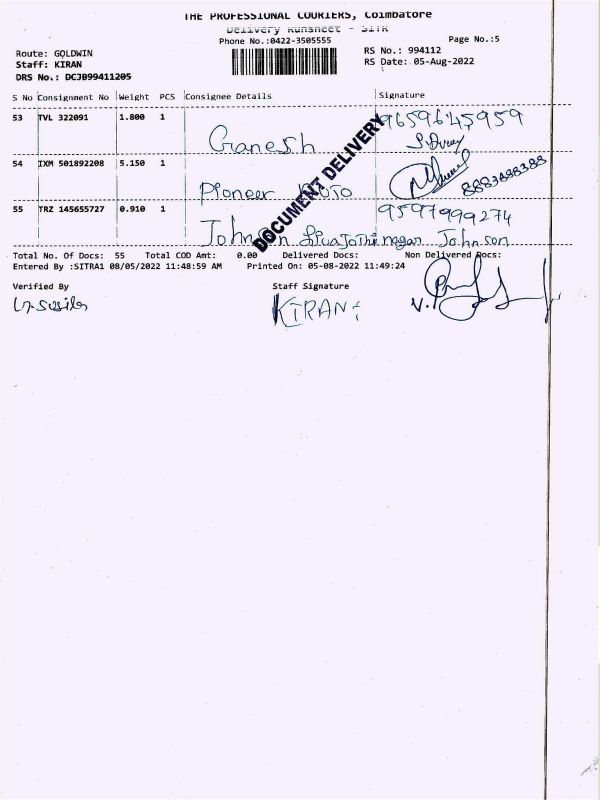 THE PROFESSIONAL COURIERS, Coimbatore
Delivery Runsheet - SITR
Phone No.:0422-3505555
Page No.:5
Route: GOLDWIN
RS No.: 994112
Staff: KIRAN
RS Date: 05-Aug-2022
DRS No.: DCJB99411205
S No Consignment No Weight PCS Consignee Details Signature
53 TVL 322091 1.800 1 Ganesh 9659645959
54 IXM 501892208 5.150 1 Pioneer Auto
55 TRZ 145655727 0.910 1 9597999274
Johnson Johnson
DOCUMENT DELIVERY
Total No. Of Docs: 55 Total COD Amt: 0.00 Delivered Docs: Non Delivered Docs:
Entered By :SITRA1 08/05/2022 11:48:59 AM Printed On: 05-08-2022 11:49:24
Verified By Staff Signature
KIRAN